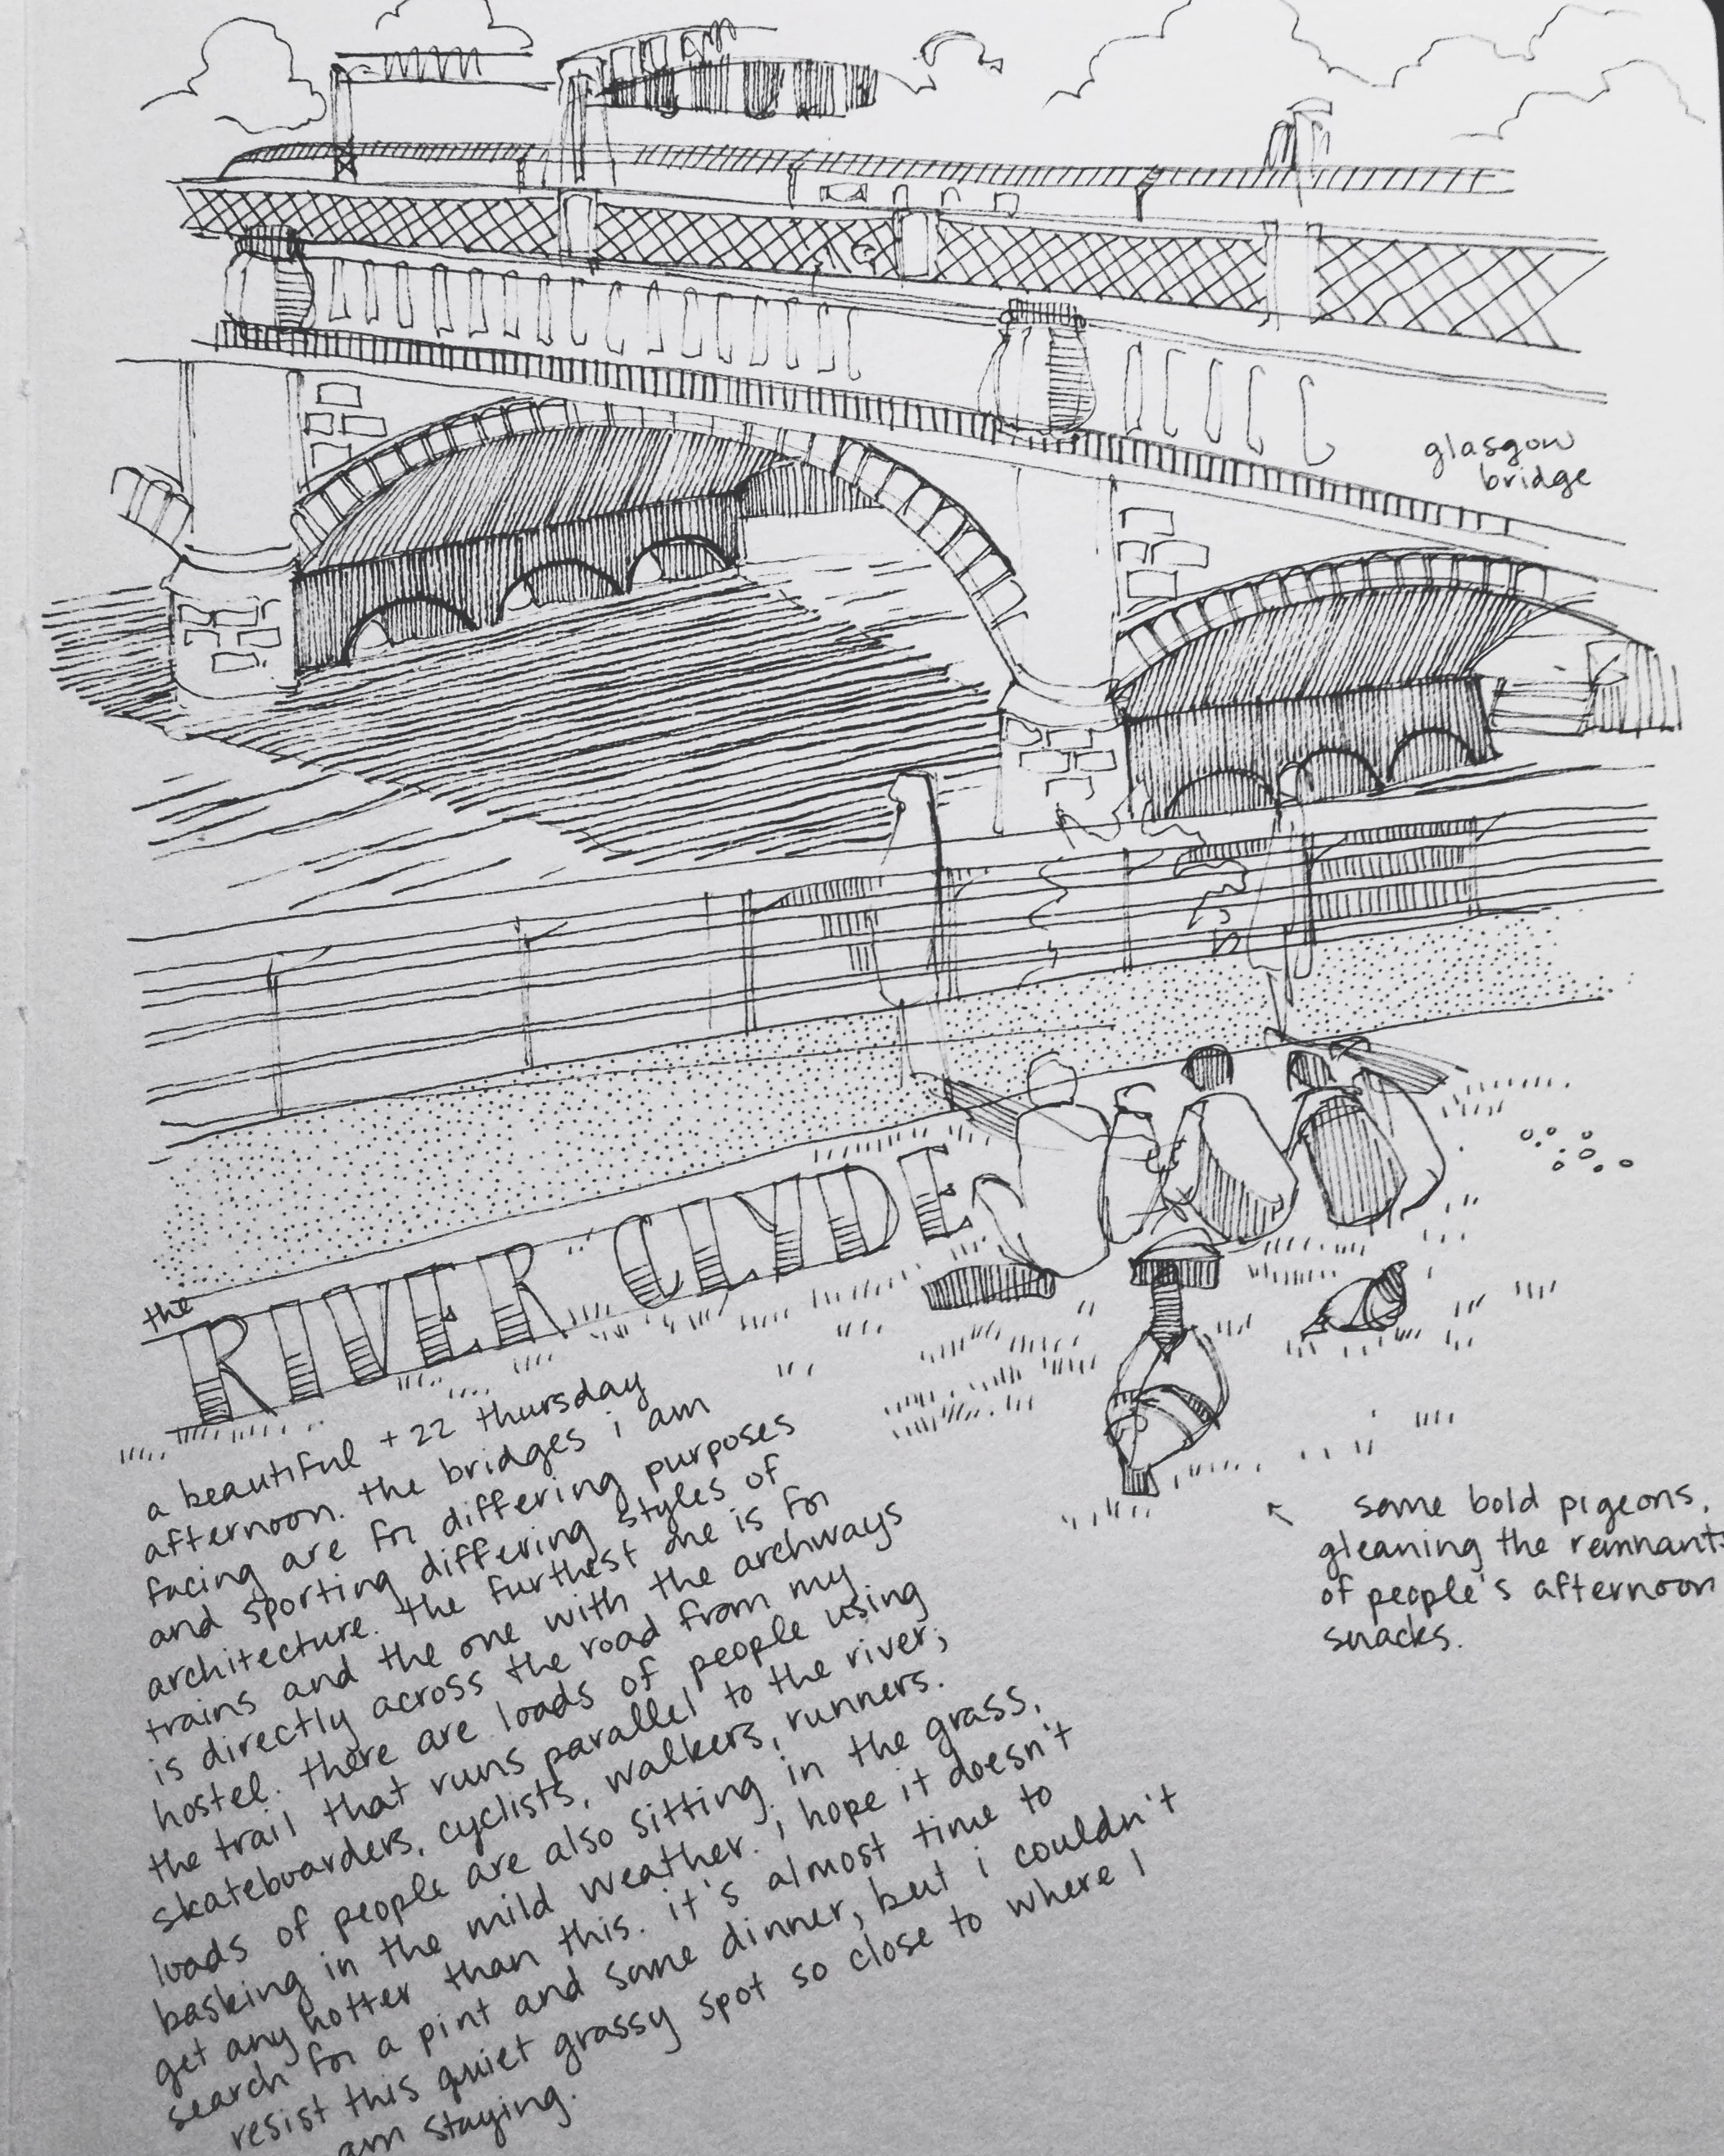 glasgow
bridge
the
RIVER CLYDE
a beautiful +22 thursday
afternoon. the bridges i am
facing are for differing purposes
and sporting differing styles of
architecture. the furthest one is for
trains and the one with the archways
is directly across the road from my
hostel. there are loads of people using
the trail that runs parallel to the river;
skateboarders, cyclists, walkers, runners.
loads of people are also sitting in the grass,
basking in the mild weather. i hope it doesn't
get any hotter than this. it's almost time to
search for a pint and some dinner, but i couldn't
resist this quiet grassy spot so close to where I
am staying.
some bold pigeons,
gleaning the remnants
of people's afternoon
snacks.